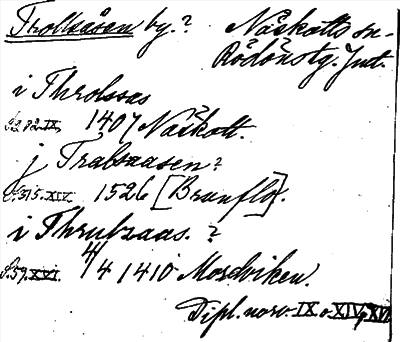 Trollsåsen by.? Näskotts sn.
Rödöns tg. Jmt.
i Throlssas
S.202.IX. 1407 12/2 Näskott.
j Trabsaasen?
S.515.XIV. 1526 [Brunflo].
i Thrubzaas.?
S.59.XVI. 4/4 1410 Mordviken.
Dipl. norv. IX. o XIV, XVI.